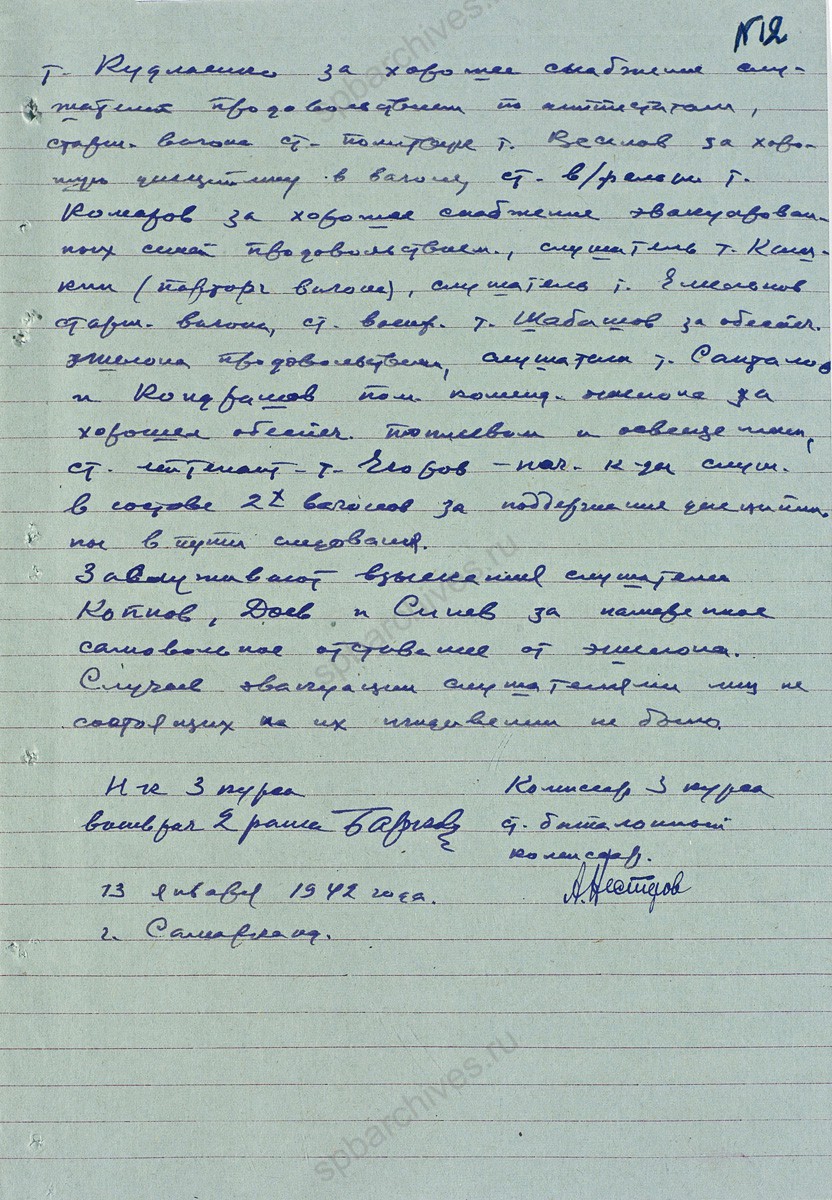 N12
т. Кудлаенко за хорошее снабжение слу-
шателей продовольствием по аттестатам,
старш. вагона ст. политрук т. Веселов за хоро-
шую дисциплину в вагоне, ст. в/фельдш. т.
Комаров за хорошее снабжение эвакуирован-
ных семей продовольствием., слушатель т.
(парторг вагона), слушатель т. Емельянов
старш. вагона, ст. военф. т. Шабашов за обеспеч.
эшелона продовольствием, слушатели т. Сандалов
и Кондрашов пом. коменд. эшелона за
хорошее обеспеч. топливом и освещением,
ст. лейтенант т. Егоров – нач. к-ды слуш.
в составе 2х вагонов за поддержание дисципли-
ны в пути следования.
Заслуживают взыскания слушатели
Копнов, Доев и за намеренное
самовольное отставание от эшелона.
Случаев эвакуации слушателями лиц не
состоящих на их иждивении не было.
Н-к 3 курса
военврач 2 ранга
Комиссар 3 курса
ст. батальонный
комиссар.
А.Нестеров
13 января 1942 года.
г. Самарканд.
spbarchives.ru
spbarchives.ru
spbarchives.ru
spbarchives.ru